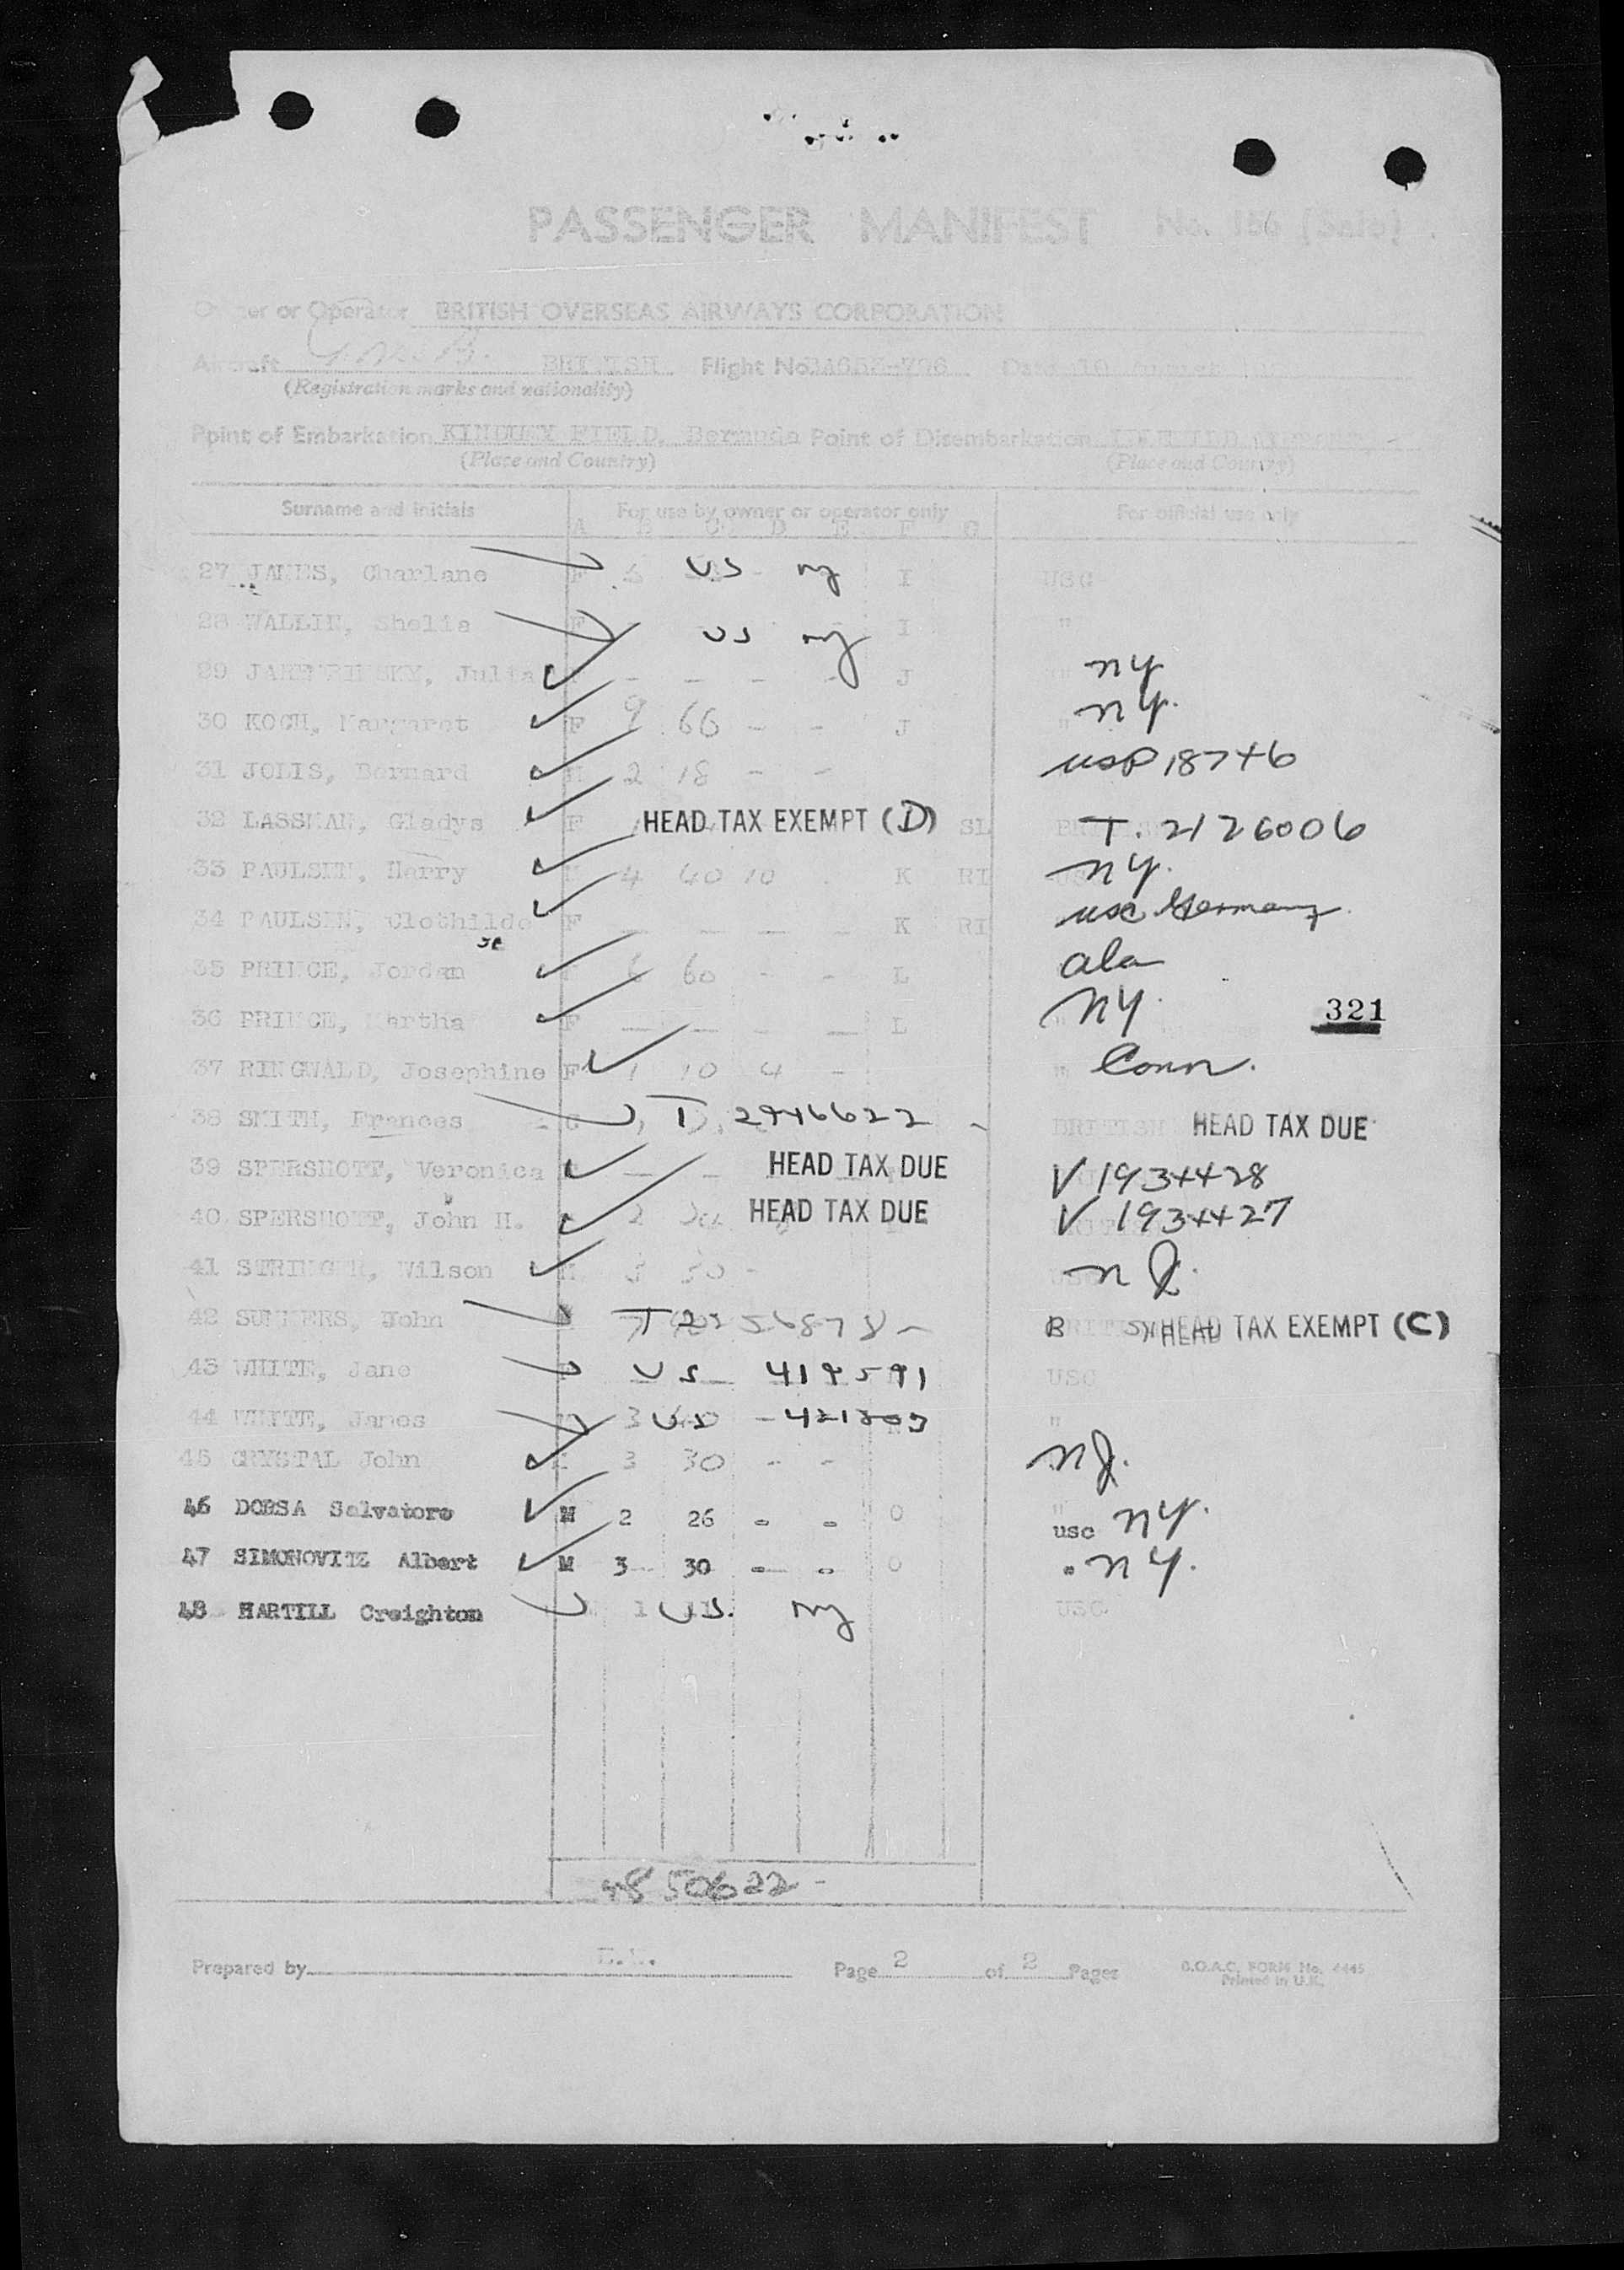 PASSENGER MANIFEST No. 156
Owner or Operator BRITISH OVERSEAS AIRWAYS CORPORATION
Aircraft BRITISH Flight No. Date 10
(Registration marks and nationality)
Point of Embarkation KINDLEY FIELD, Bermuda Point of Disembarkation
(Place and Country) (Place and Country)
Surname and initials For use by owner or operator only For official use only
A B C D E F G
27 JAMES, Charlane F US ny I USC
28 WALLIN, Shelia F US ny I "
29 Julia - - - - J " NY
30 KOCH, Margaret F 9 66 - - J " NY.
31 JOLIS, Bernard M 2 18 - - usp 18746
32 LASSMAN, Gladys F HEAD TAX EXEMPT (D) SL T. 2126006
33 PAULSEN, Harry M 4 40 10 K RI NY.
34 PAULSEN, Clothilde F - - - - K RI usc Germany.
35 PRINCE, Jordan 6 60 - - L ala
36 PRINCE, Martha F - - - - L " NY.
321
37 RINGWALD, Josephine F 1 10 4 - " Conn.
38 SMITH, Frances T 2946622 - BRITISH HEAD TAX DUE
39 SPERSHOTT, Veronica - - HEAD TAX DUE V 1934428
40 SPERSHOTT, John H. 2 HEAD TAX DUE V 1934427
41 STRINGER, Wilson M 3 30 - NJ.
42 SUMMERS, John T 2 56878 - BRITISH HEAD TAX EXEMPT (C)
43 WHITE, Jane US 419591 USC
44 WHITE, James 3 US - "
45 CRYSTAL John 3 30 - - NJ.
46 DORSA Salvatore M 2 26 - - O usc NY.
47 SIMONOVITZ Albert M 3 30 - - O " NY.
48 HARTILL Creighton 1 US. ny USC
48 506 22 -
Prepared by Page 2 of 2 Pages B.O.A.C. FORM No. 4445
Printed in U.K.